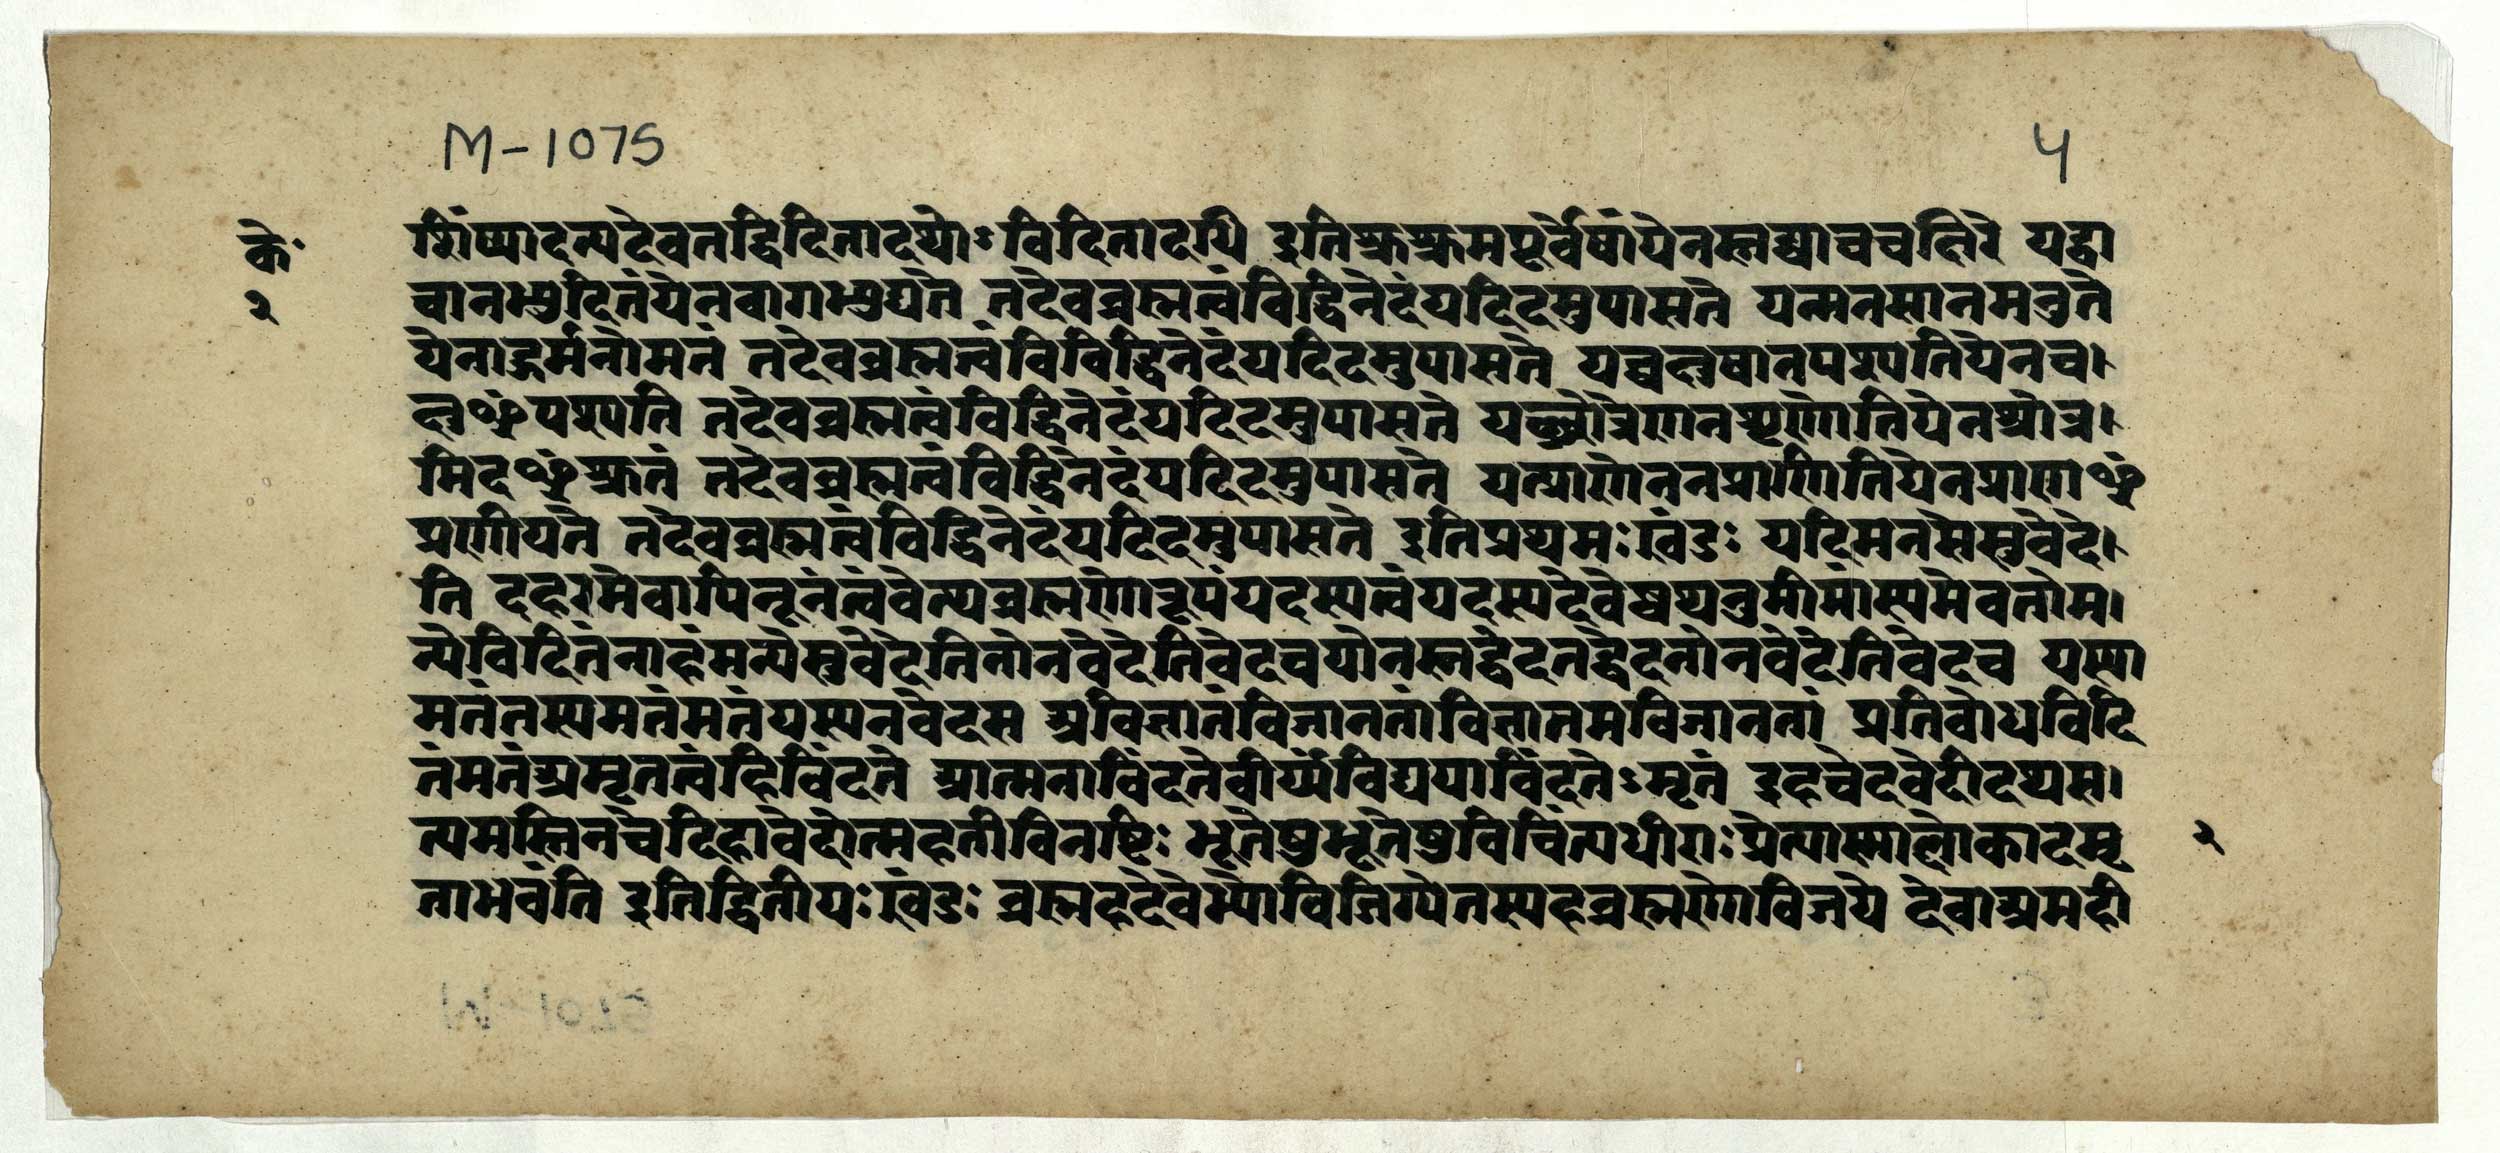 M-1075
५
के॰
२
शिंष्यादन्यदेवतद्विदितादथोऽविदितादधि इतिशुश्रुमपूर्वेषांयेनस्तद्याचचक्षिरे यद्वा
चानभ्युदितंयेनवागभ्युद्यते तदेवब्रह्मत्वंविद्धिनेदंयदिदमुपासते यन्मनसानमनुते
येनाहुर्मनोमतं तदेवब्रह्मत्वंविविद्धिनेदंयदिदमुपासते यच्चक्षुषानपश्यतियेनच।
क्षूꣳषिपश्यति तदेवब्रह्मत्वंविद्धिनेदंयदिदमुपासते यच्छ्रोत्रेणनशृणोतियेनश्रोत्र।
मिदꣳश्रुतं तदेवब्रह्मत्वंविद्धिनेदंयदिदमुपासते यत्प्राणेननप्राणितियेनप्राणꣳ
प्रणीयते तदेवब्रह्मत्वंविद्धिनेदंयदिदमुपासते इतिप्रथमः खंडः यदिमनसेसुवेदे।
ति दहरमेवापिनूनंत्वंवेत्थब्रह्मणोरूपंयदस्यत्वंयदस्यदेवेष्वथनुमीमांस्यमेवतोम।
न्येविदितंनाहंमन्येसुवेदेतिनोनवेदेतिवेदचयोनस्तद्वेदतद्वेदनोनवेदेतिवेदच यस्या
मतंतस्यमतंमतंयस्यनवेदस अविज्ञातंविजानतांविज्ञातमविजानतां प्रतिबोधविदि
तंमतंअमृतत्वंहिविंदते आत्मनाविंदतेवीर्य्यंविद्ययाविंदतेऽमृतं इहचेदवेदीदथस।
त्यमस्तिनचेदिहावेदीत्महतीविनष्टिः भूतेषुभूतेषुविचिंत्यधीराः प्रेत्यास्माल्लोकादमृ
२
ताभवंति इतिद्वितीयः खंडः ब्रह्महदेवेभ्योविजिग्येतस्यहब्रह्मणोविजये देवाअमही